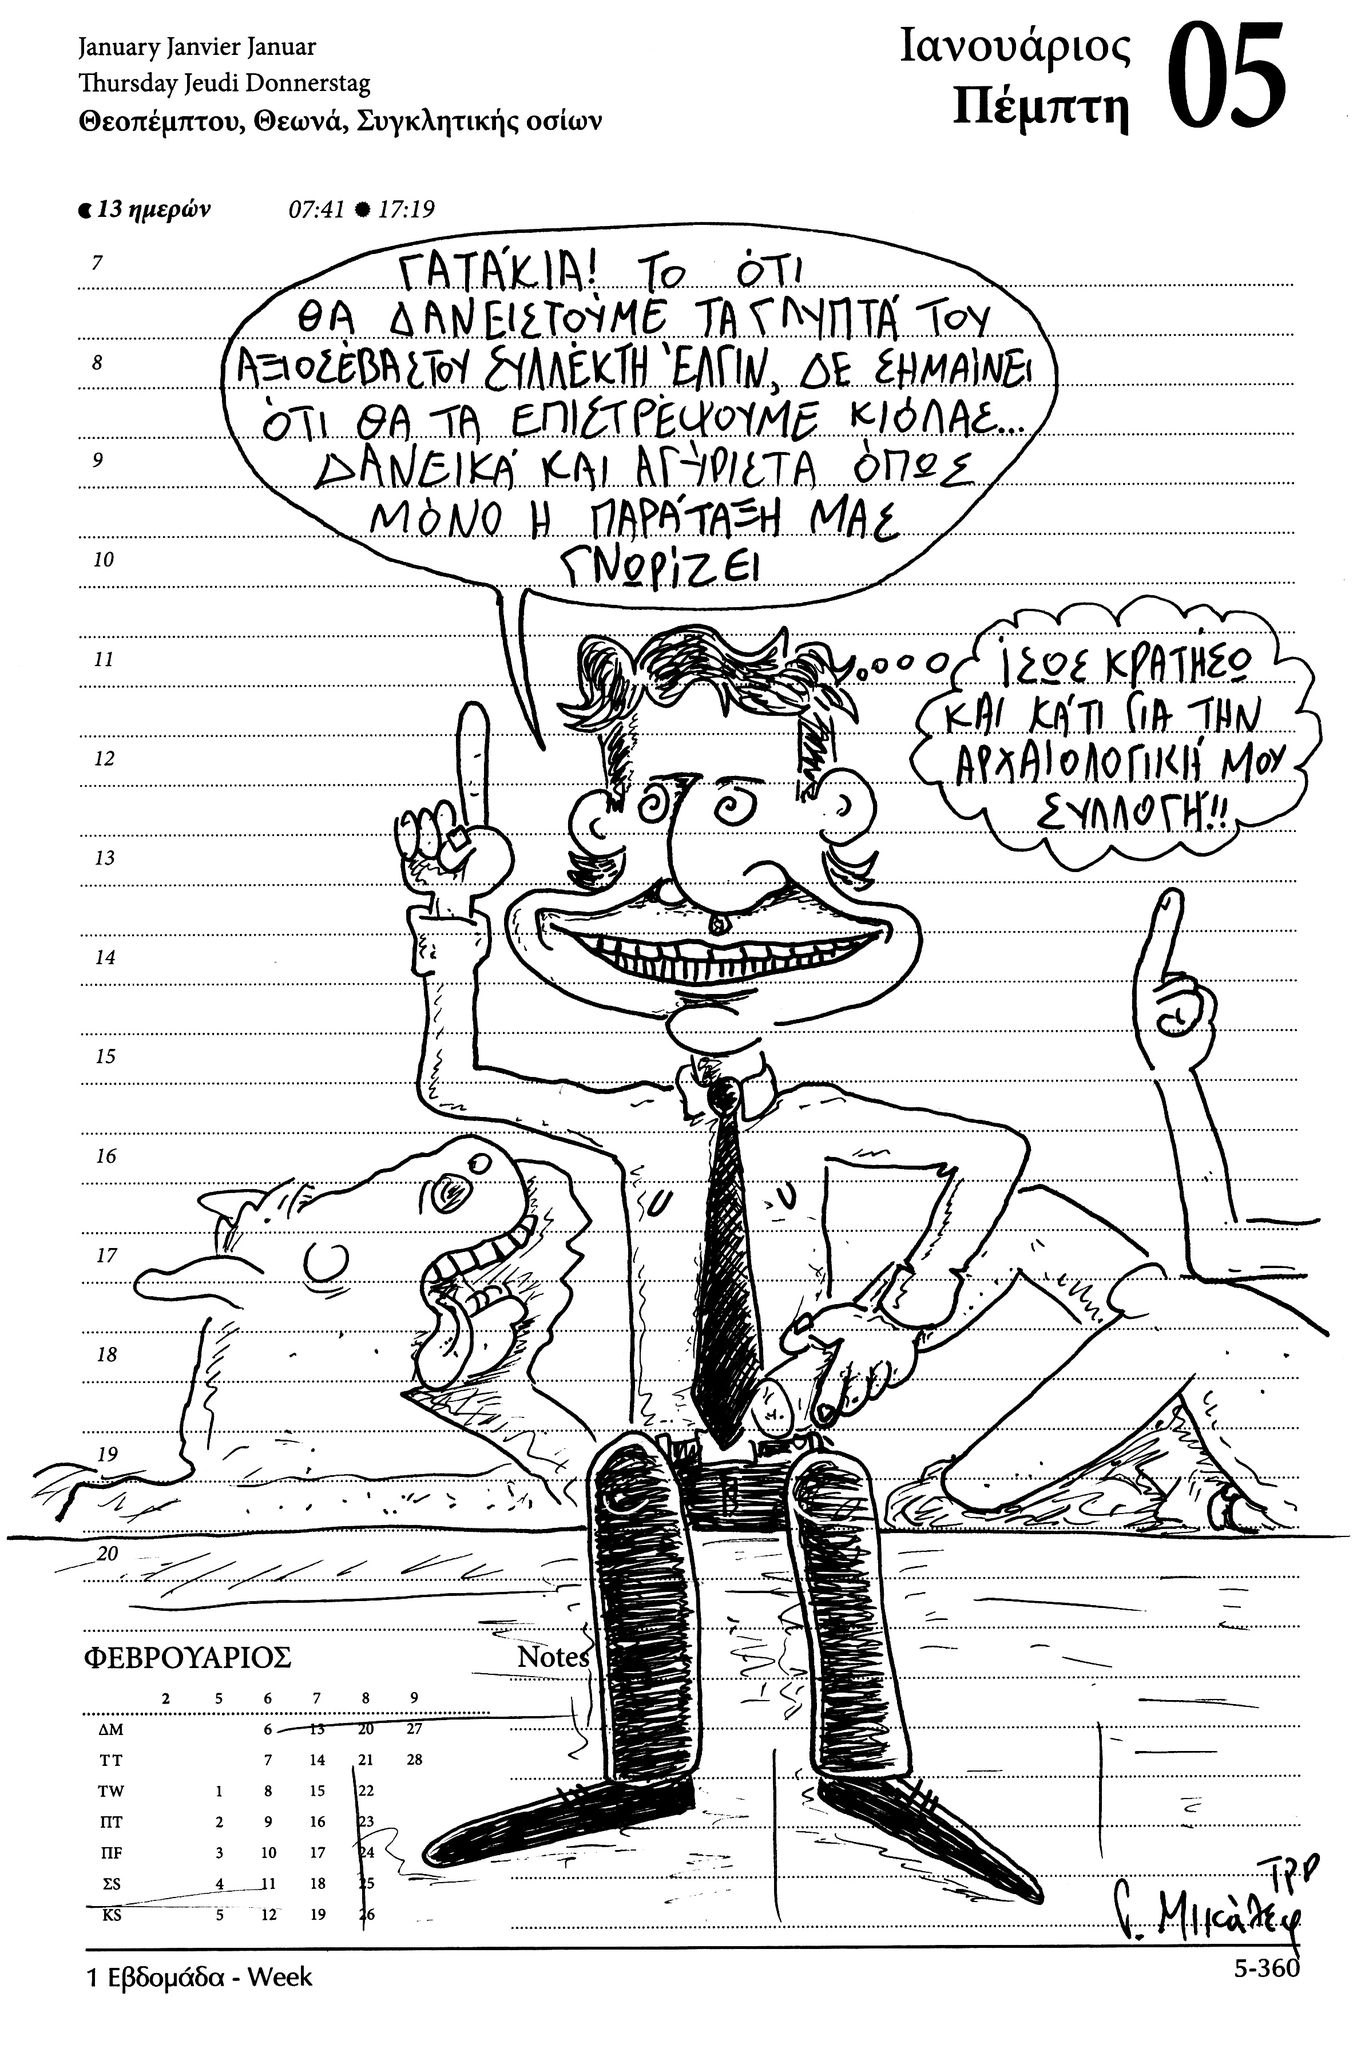 January Janvier Januar
Thursday Jeudi Donnerstag
Θεοπέμπτου, Θεωνά, Συγκλητικής οσίων
Ιανουάριος
Πέμπτη
05
13 ημερών 07:41 17:19
7
8
9
10
11
12
13
14
15
16
17
18
19
20
ΓΑΤΆΚΙΑ! ΤΟ ΌΤΙ
ΘΑ ΔΑΝΕΙΣΤΟΎΜΕ ΤΑ ΓΛΥΠΤΆ ΤΟΥ
ΑΞΙΟΣΈΒΑΣΤΟΥ ΣΥΛΛΈΚΤΗ ΈΛΓΙΝ, ΔΕ ΣΗΜΑΊΝΕΙ
ΌΤΙ ΘΑ ΤΑ ΕΠΙΣΤΡΈΨΟΥΜΕ ΚΙΌΛΑΣ...
ΔΑΝΕΙΚΆ ΚΑΙ ΑΓΎΡΙΣΤΑ ΌΠΩΣ
ΜΌΝΟ Η ΠΑΡΆΤΑΞΗ ΜΑΣ
ΓΝΩΡΊΖΕΙ
ΊΣΩΣ ΚΡΑΤΉΣΩ
ΚΑΙ ΚΆΤΙ ΓΙΑ ΤΗΝ
ΑΡΧΑΙΟΛΟΓΙΚΉ ΜΟΥ
ΣΥΛΛΟΓΉ!!
ΦΕΒΡΟΥΑΡΙΟΣ
2 5 6 7 8 9
ΔM 6 13 20 27
ΤT 7 14 21 28
ΤW 1 8 15 22
ΠT 2 9 16 23
ΠF 3 10 17 24
ΣS 4 11 18 25
ΚS 5 12 19 26
Notes
Γ. Μικάλεφ
1 Εβδομάδα - Week
5-360